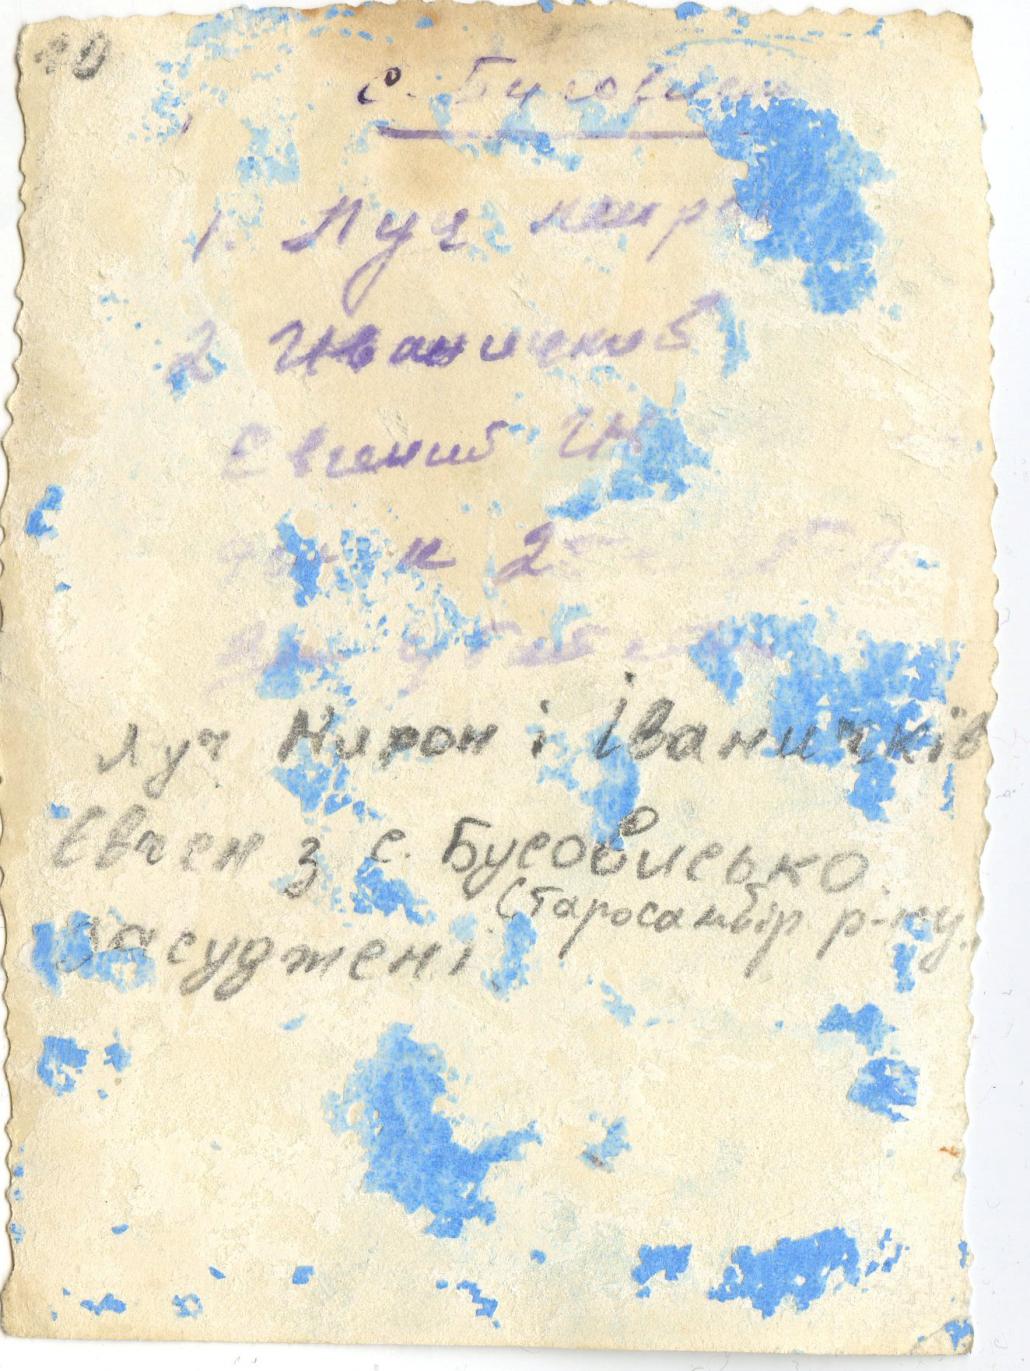 с. Бусовисько
1. Луч мирон
2 Иваничкив
Евгений Ив
к 25
Луч Мирон і Іваничків
Євген з с. Бусовисько
Старосамбір р-ну.
засуджені